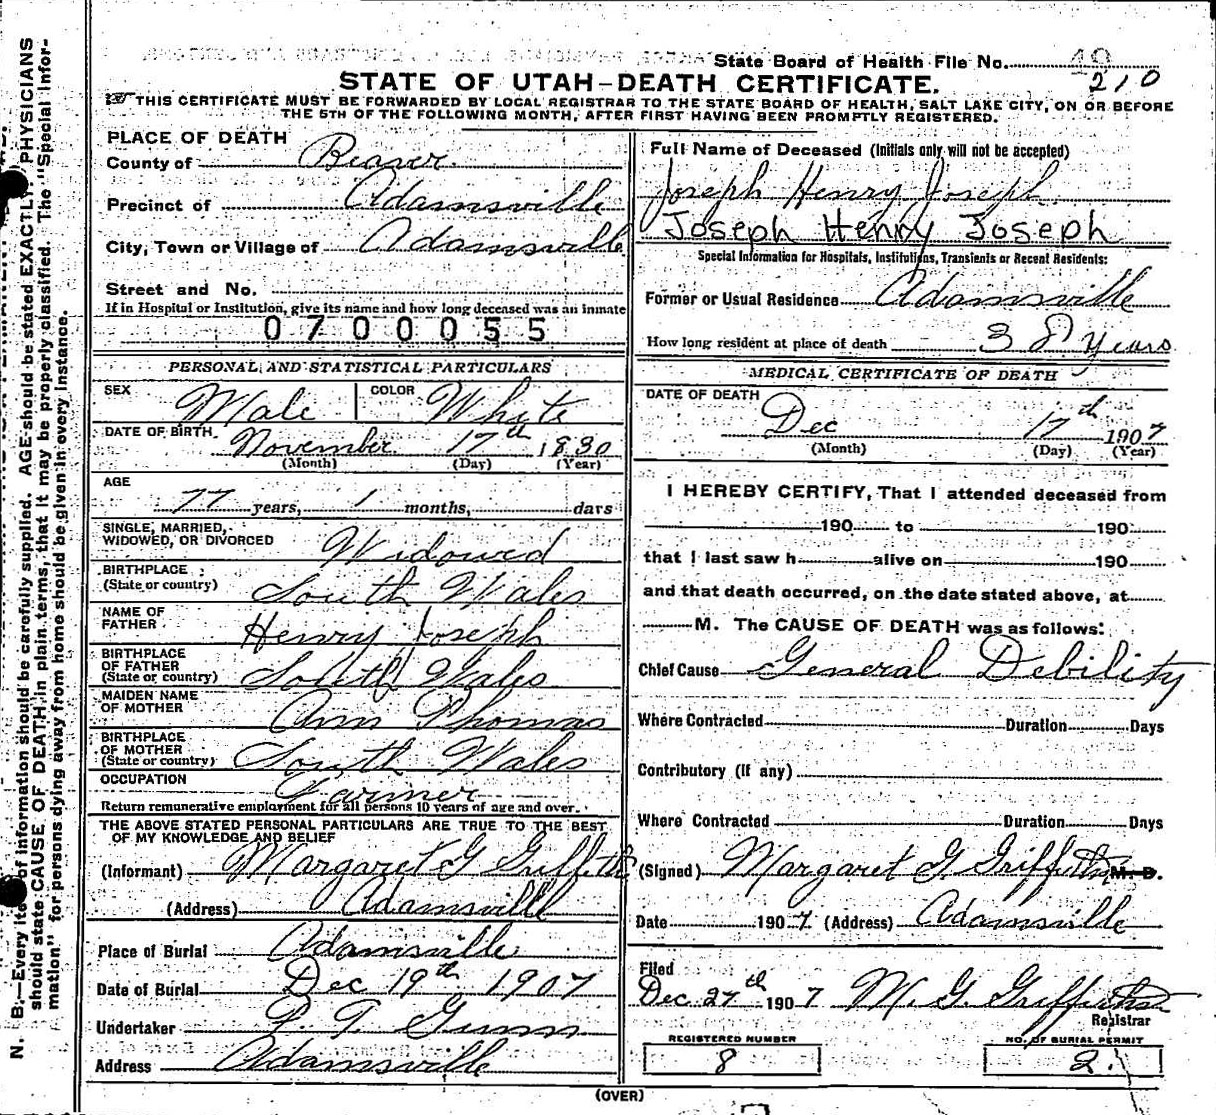 State Board of Health File No. 49
210
STATE OF UTAH—DEATH CERTIFICATE.
THIS CERTIFICATE MUST BE FORWARDED BY LOCAL REGISTRAR TO THE STATE BOARD OF HEALTH, SALT LAKE CITY, ON OR BEFORE
THE 5TH OF THE FOLLOWING MONTH, AFTER FIRST HAVING BEEN PROMPTLY REGISTERED.
PLACE OF DEATH
County of Beaver
Precinct of Adamsville
City, Town or Village of Adamsville
Street and No.
If in Hospital or Institution, give its name and how long deceased was an inmate
0700055
PERSONAL AND STATISTICAL PARTICULARS
SEX Male COLOR White
DATE OF BIRTH November 17th 1830
(Month) (Day) (Year)
AGE
77 years, 1 months, days
SINGLE, MARRIED,
WIDOWED, OR DIVORCED Widowed
BIRTHPLACE
(State or country) South Wales
NAME OF
FATHER Henry Joseph
BIRTHPLACE
OF FATHER
(State or country) South Wales
MAIDEN NAME
OF MOTHER Ann Thomas
BIRTHPLACE
OF MOTHER
(State or country) South Wales
OCCUPATION Farmer
Return remunerative employment for all persons 10 years of age and over.
THE ABOVE STATED PERSONAL PARTICULARS ARE TRUE TO THE BEST
OF MY KNOWLEDGE AND BELIEF
(Informant) Margaret G Griffiths
(Address) Adamsville
Place of Burial Adamsville
Date of Burial Dec 19th 1907
Undertaker
Address Adamsville
Full Name of Deceased (Initials only will not be accepted)
Joseph Henry Joseph
Joseph Henry Joseph
Special Information for Hospitals, Institutions, Transients or Recent Residents:
Former or Usual Residence Adamsville
How long resident at place of death 38 Years
MEDICAL CERTIFICATE OF DEATH
DATE OF DEATH
Dec 17th 1907
(Month) (Day) (Year)
I HEREBY CERTIFY, That I attended deceased from
190 to 190
that I last saw h alive on 190
and that death occurred, on the date stated above, at
M. The CAUSE OF DEATH was as follows:
Chief Cause General Debility
Where Contracted Duration Days
Contributory (if any)
Where Contracted Duration Days
(Signed) Margaret G. Griffiths M. D.
Date 1907 (Address) Adamsville
Filed
Dec. 27th 1907 M. G. Griffiths
Registrar
REGISTERED NUMBER
8
NO. OF BURIAL PERMIT
2.
(OVER)
N. B.—Every item of information should be carefully supplied. AGE should be stated EXACTLY. PHYSICIANS
should state CAUSE OF DEATH in plain terms, that it may be properly classified. The "Special Infor-
mation" for persons dying away from home should be given in every instance.